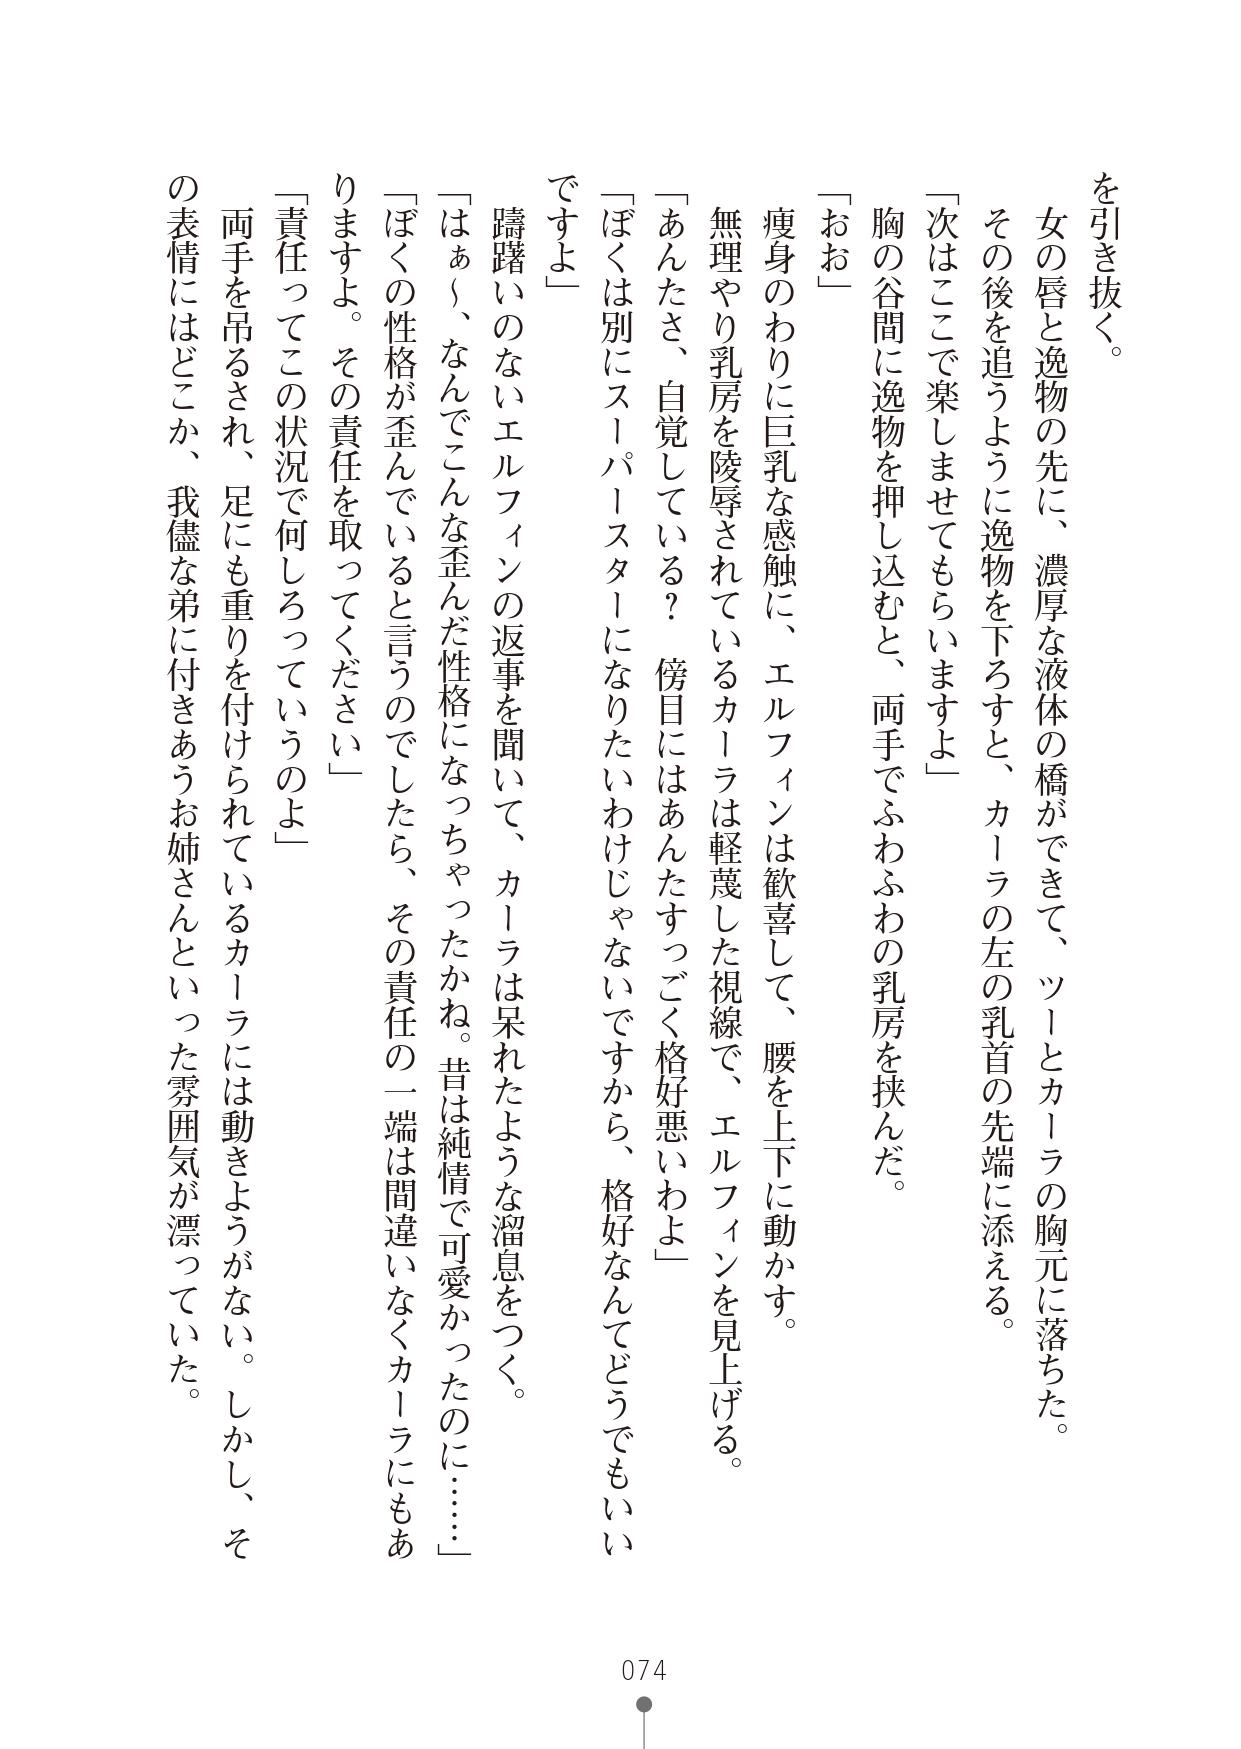 を引き抜く。
女の唇と逸物の先に、濃厚な液体の橋ができて、ツーとカーラの胸元に落ちた。
その後を追うように逸物を下ろすと、カーラの左の乳首の先端に添える。
「次はここで楽しませてもらいますよ」
胸の谷間に逸物を押し込むと、両手でふわふわの乳房を挟んだ。
「おお」
痩身のわりに巨乳な感触に、エルフィンは歓喜して、腰を上下に動かす。
無理やり乳房を陵辱されているカーラは軽蔑した視線で、エルフィンを見上げる。
「あんたさ、自覚している？　傍目にはあんたすっごく格好悪いわよ」
「ぼくは別にスーパースターになりたいわけじゃないですから、格好なんてどうでもいい
ですよ」
躊躇いのないエルフィンの返事を聞いて、カーラは呆れたような溜息をつく。
「はぁ～、なんでこんな歪んだ性格になっちゃったかね。昔は純情で可愛かったのに……」
「ぼくの性格が歪んでいると言うのでしたら、その責任の一端は間違いなくカーラにもあ
りますよ。その責任を取ってください」
「責任ってこの状況で何しろっていうのよ」
両手を吊るされ、足にも重りを付けられているカーラには動きようがない。しかし、そ
の表情にはどこか、我儘な弟に付きあうお姉さんといった雰囲気が漂っていた。
074